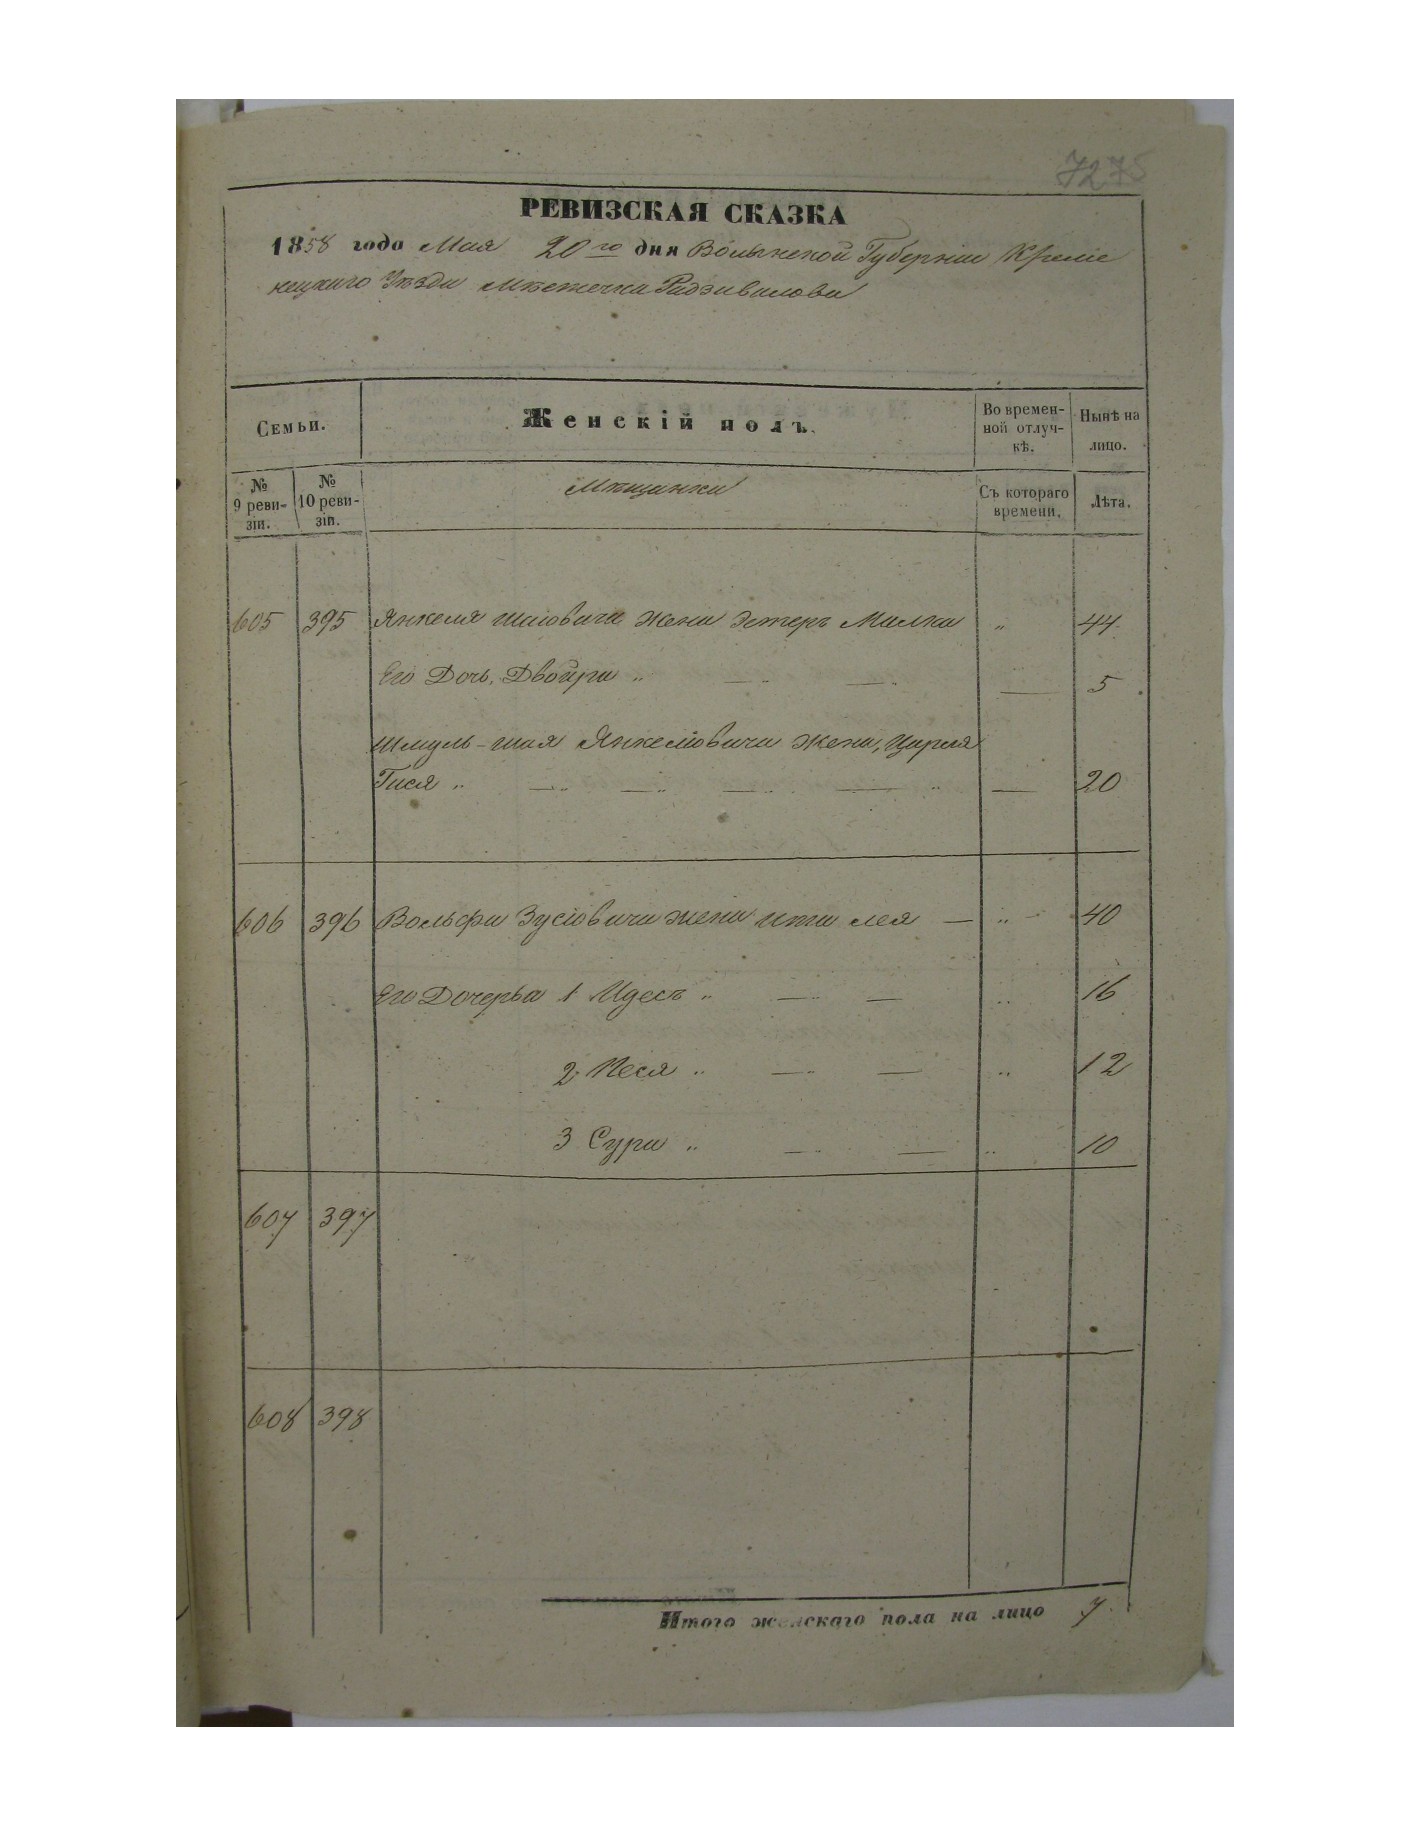 7275
РЕВИЗСКАЯ СКАЗКА
1858 года Мая 20го дня Волынской Губерніи Креме
нецкаго Уѣзда Мѣстечка Радзивилова
Семьи.
Женскій полъ.
Во времен-
ной отлуч-
кѣ.
Нынѣ на
лицо.
№
9 реви-
зіи.
№
10 реви-
зіи.
Мѣщанки
Съ котораго
времени.
Лѣта.
605 395 Янкеля Шаіовича жена Эстеръ Малка „ 44
Его Дочь, Двойра „ — „ — „ — 5
Шмуль-Шая Янкеліовича жена, Цирля
Гися „ — „ — „ — „ — „ — 20
606 396 Вольфа Зусіовича жена Ита Лея — „ 40
Его Дочерьа 1 Идесъ „ — „ — „ 16
2 Песя „ — „ — „ 12
3 Сура „ — „ — „ 10
607 397
608 398
Итого женскаго пола на лицо 7